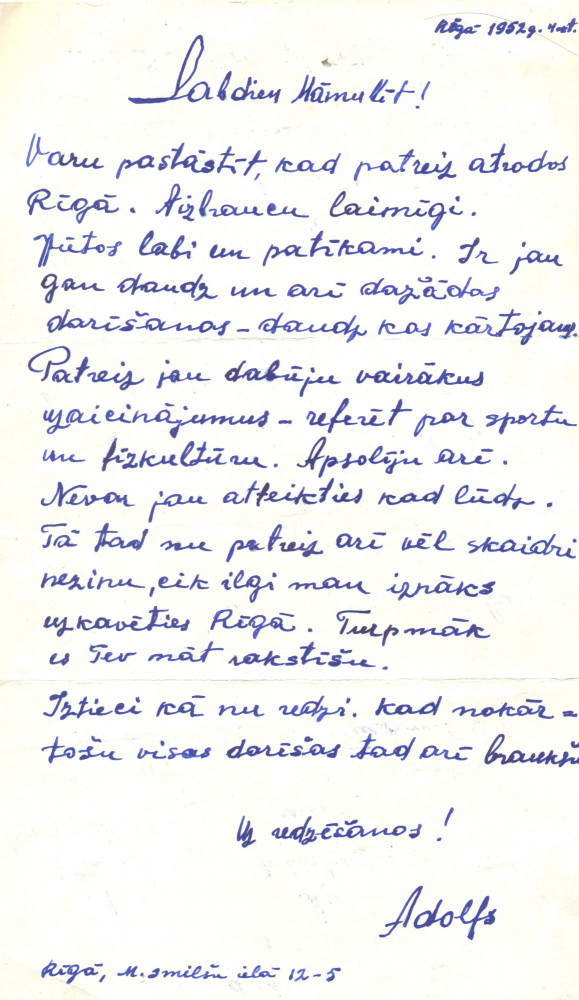 Rīgā 1952g. 4 okt.
Labdien Māmulīt!
Varu pastāstīt, kad patreiz atrodos
Rīgā. Aizbraucu laimīgi.
Jūtos labi un patīkami. Ir jau
gan daudz un arī dažādas
darīšanas – daudz kas kārtojams.
Patreiz jau dabūju vairākus
uzaicinājumus – referēt par sportu
un fizkultūru. Apsolīju arī.
Nevar jau atteikties kad lūdz.
Tā tad nu patreiz arī vēl skaidri
nezinu, cik ilgi man iznāks
uzkavēties Rīgā. Turpmāk
es Tev māt rakstīšu.
Iztieci kā nu redzi. Kad nokār=
tošu visas darīšas tad arī braukšu
Uz redzēšanos!
Adolfs
Rīgā, M. smilšu ielā 12-5